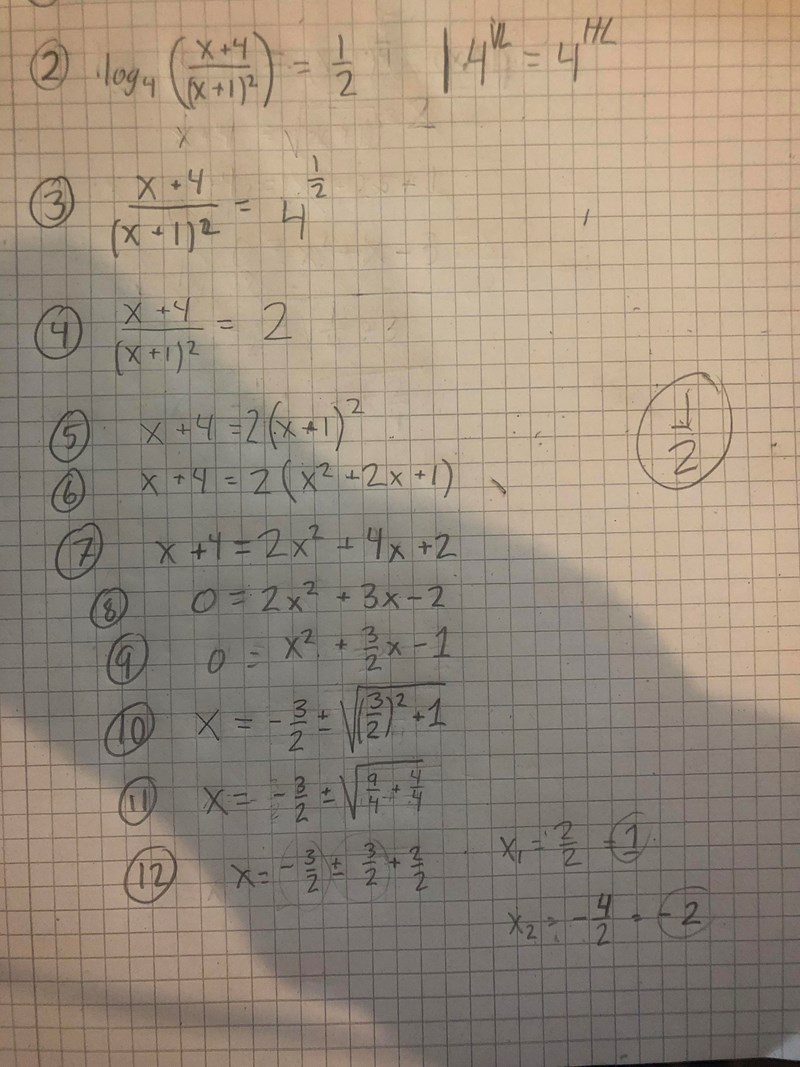 ② log₄ ((x+4)/(x+1)²) = 1/2 | 4^VL = 4^HL
③ (x+4)/(x+1)² = 4^(1/2)
④ (x+4)/(x+1)² = 2
⑤ x+4 = 2(x+1)²
⑥ x+4 = 2(x²+2x+1)
⑦ x+4 = 2x² + 4x + 2
⑧ 0 = 2x² + 3x - 2
⑨ 0 = x² + 3/2 x - 1
⑩ x = -3/2 ± √((3/2)² + 1)
⑪ x = -3/2 ± √(9/4 + 4/4)
⑫ x = -3/2 ± 3/2 + 2/2
x₁ = 2/2 = 1
x₂ = -4/2 = -2
↓
2